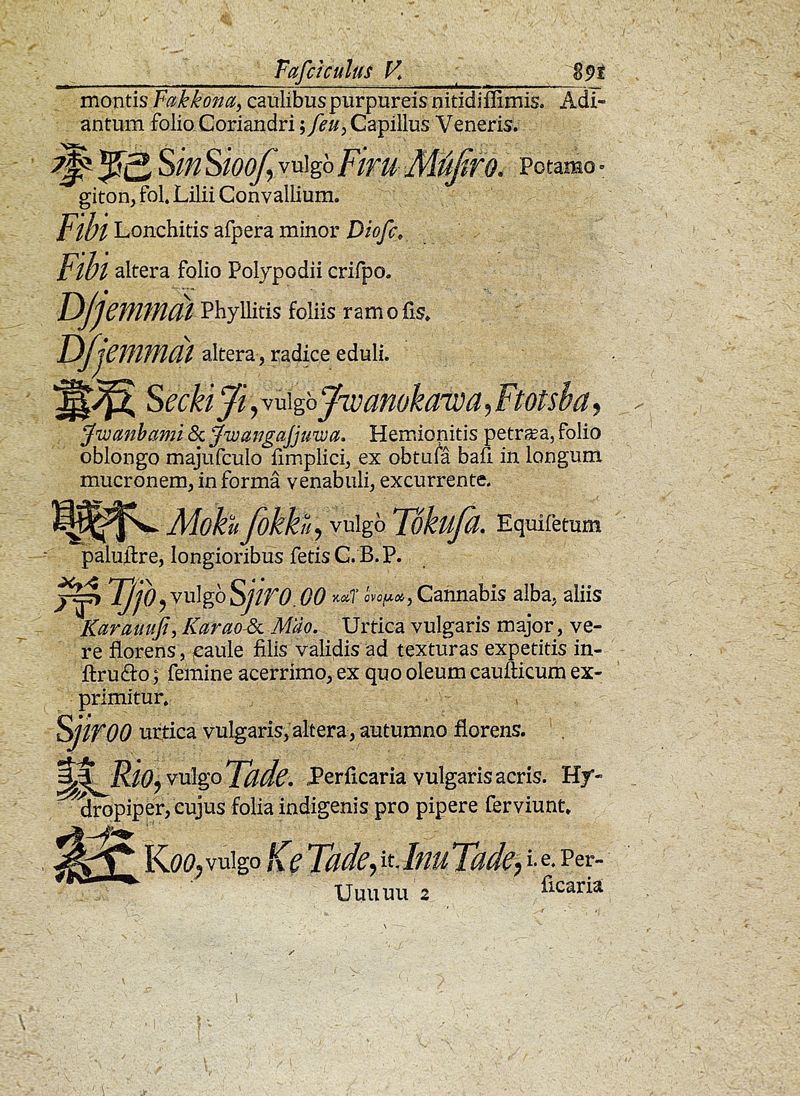 Faſciculus V. 891
montis Fakkona, caulibus purpureis nitidiſſimis. Adi-
antum folio Coriandri; ſeu, Capillus Veneris.
Sin Siooſ, vulgò Firu Múſiro. Potamo-
giton, fol. Lilii Convallium.
Fibi Lonchitis aſpera minor Dioſc.
Fibi altera folio Polypodii criſpo.
Dſjemmai Phyllitis foliis ramoſis.
Dſjemmai altera, radice eduli.
石 Secki Ji, vulgò Jwanokawa, Ftotsba,
Jwanbami & Jwangaſjuwa. Hemionitis petræa, folio
oblongo majuſculo ſimplici, ex obtuſâ baſi in longum
mucronem, in formâ venabuli, excurrente.
木 賊 Mokŭ ſokkŭ, vulgò Tokuſa. Equiſetum
paluſtre, longioribus ſetis C. B. P.
Tjjò, vulgò Sjiro oo κατ' ὄνομα, Cannabis alba, aliis
Karauuſi, Karao & Mao. Urtica vulgaris major, ve-
re florens, caule filis validis ad texturas expetitis in-
ſtructo; ſemine acerrimo, ex quo oleum cauſticum ex-
primitur.
Sjiroo urtica vulgaris, altera, autumno florens.
Rio, vulgo Tade. Perſicaria vulgaris acris. Hy-
dropiper, cujus folia indigenis pro pipere ſerviunt.
Koo, vulgo Ke Tade, it. Inu Tade, i. e. Per-
Uuuuu 2 ſicaria